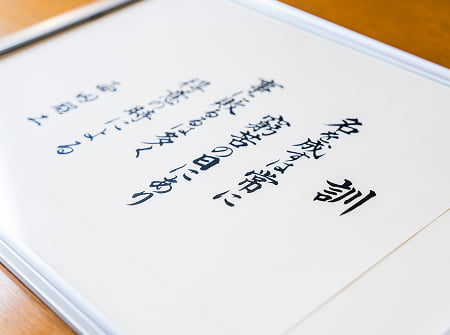 訓
名を成すは常に
窮苦の日にあり
事に敗るるは多く
得意の時による